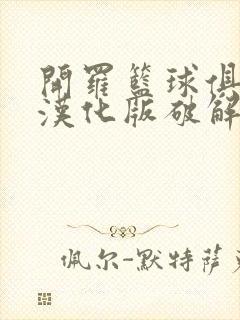 開羅籃球俱
漢化版破解
佩尔-默特萨